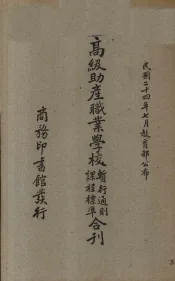 民國二十四年七月教育部公布
高級助產職業學校暫行通則課程標準合刊
商務印書館發行